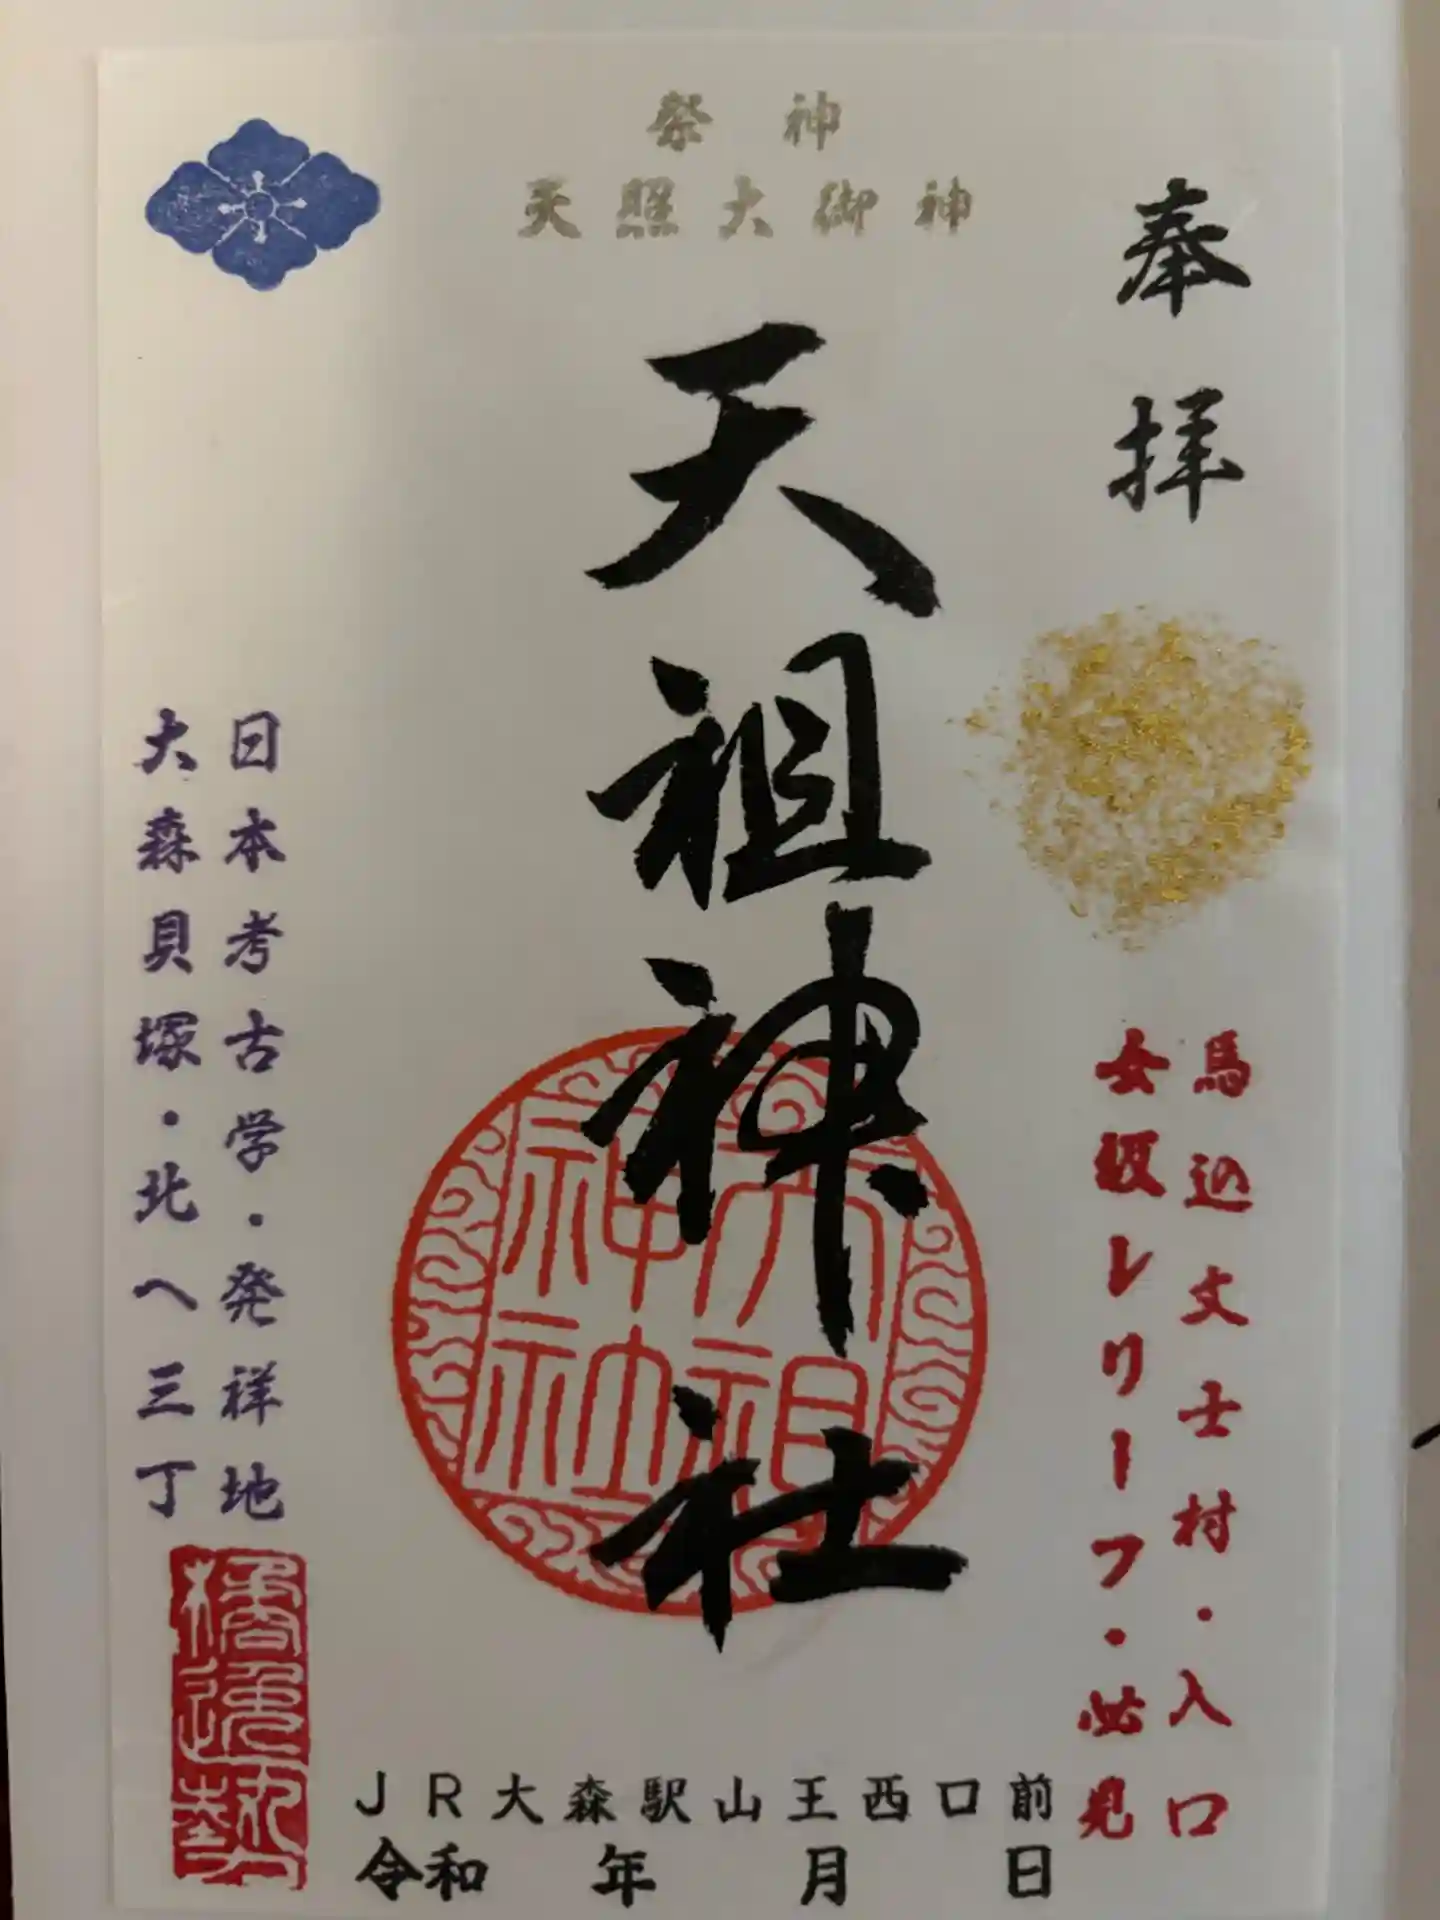 祭神
天照大御神
奉拝
馬込文士村・入口
女坂レリーフ・必見
天祖神社
天祖神社
日本考古学・発祥地
大森貝塚・北へ三丁
JR大森駅山王西口前
令和 年 月 日